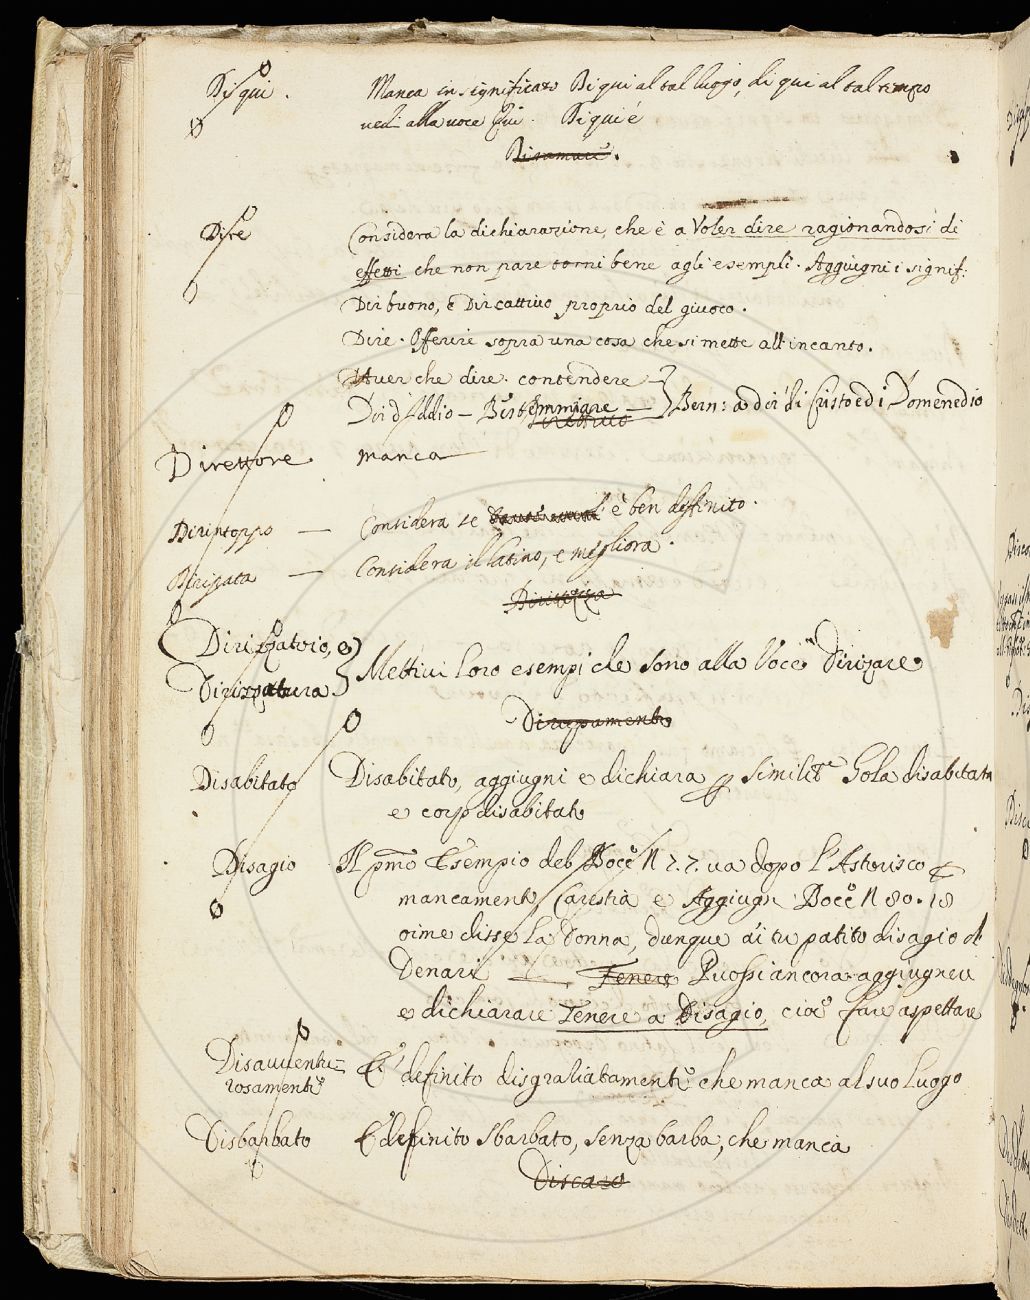 Di qui. Manca in significato Di qui al tal luogo, di qui al tal tempo
ved: alla voce Qui. Di qui è
Dire Considera la dichiarazione, che è a Voler dire ragionandosi di
effetti che non pare torni bene agli esempli. Aggiugni i signif:
Dir buono, e Dir cattivo proprio del giuoco.
Dire. Offerire sopra una cosa che si mette all'incanto.
Aver che dire. contendere
Dir d'Iddio — Bestemmiare — Bern: a dir di Cristo e di Domenedio
Direttivo
Direttore manca
Dirintoppo — Considera se è ben definito.
Dirizzata — Considera il latino, e migliora.
Dirittezza
Dirizzatoio, e
Dirizzatura Mettivi loro esempi che sono alla Voce Dirizare
Dirupamento
Disabitato Disabitato, aggiugni e dichiara p similit.e Gola disabitata
e corpo disabitato
Disagio Il pmo Esempio del Bocc: N 77. va dopo l'Asterisco
mancamento Carestia e Aggiugni Bocc: N 80. 18
oime disse la Donna, dunque ai tu patito disagio di
Denari — Tenere Puossi ancora aggiugnere
e dichiarare Tenere a Disagio, cioè fare aspettare
Disavventu=
rosamente E' definito disgraziatamente che manca al suo Luogo
Disbarbato E' definito sbarbato, senza barba, che manca
Discaro